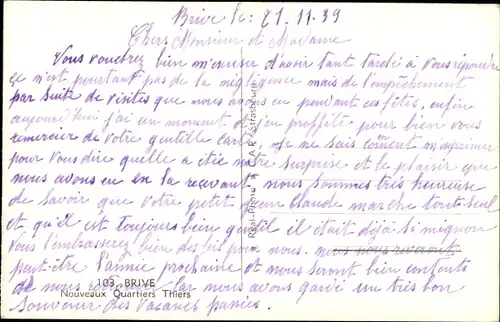 Brive le: 21.11.39
Chers Monsieur et Madame
Vous voudrez bien m'excuser d'avoir tant tardé à vous répondre
ce n'est pourtant pas de la négligence mais de l'empêchement
par suite de visites que nous avons eu pendant ces fêtes, enfin
aujourd'hui j'ai un moment et j'en profite pour bien vous
remercier de votre gentille carte. Je ne sais coment m'exprimer
pour vous dire quelle a étée notre surprise et le plaisir que
nous avons eu en la recevant nous sommes très heureuse
de savoir que votre petit Jean Claude marche tout seul
et qu'il est toujours bien gentil il était déjà si mignon
Vous l'embrasserez bien des fois pour nous. nous nous reverrons
peut-être l'année prochaine et nous seront bien contents
de nous car nous avons gardé un très bon
souvenir des vacances passées.
103 BRIVE
Nouveaux Quartiers Thiers